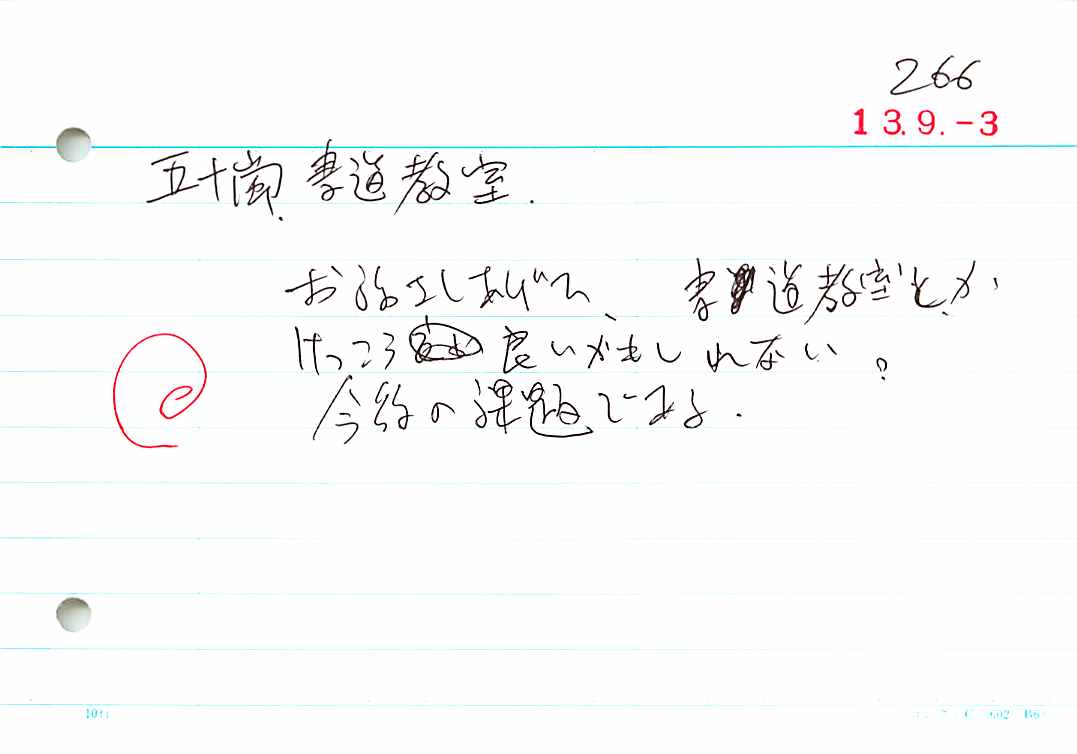 266
13.9.-3
五十嵐 書道教室.
お強えしあげて、書道教室とか
けっこう良いかもしれない?
今後の課題である.
10行